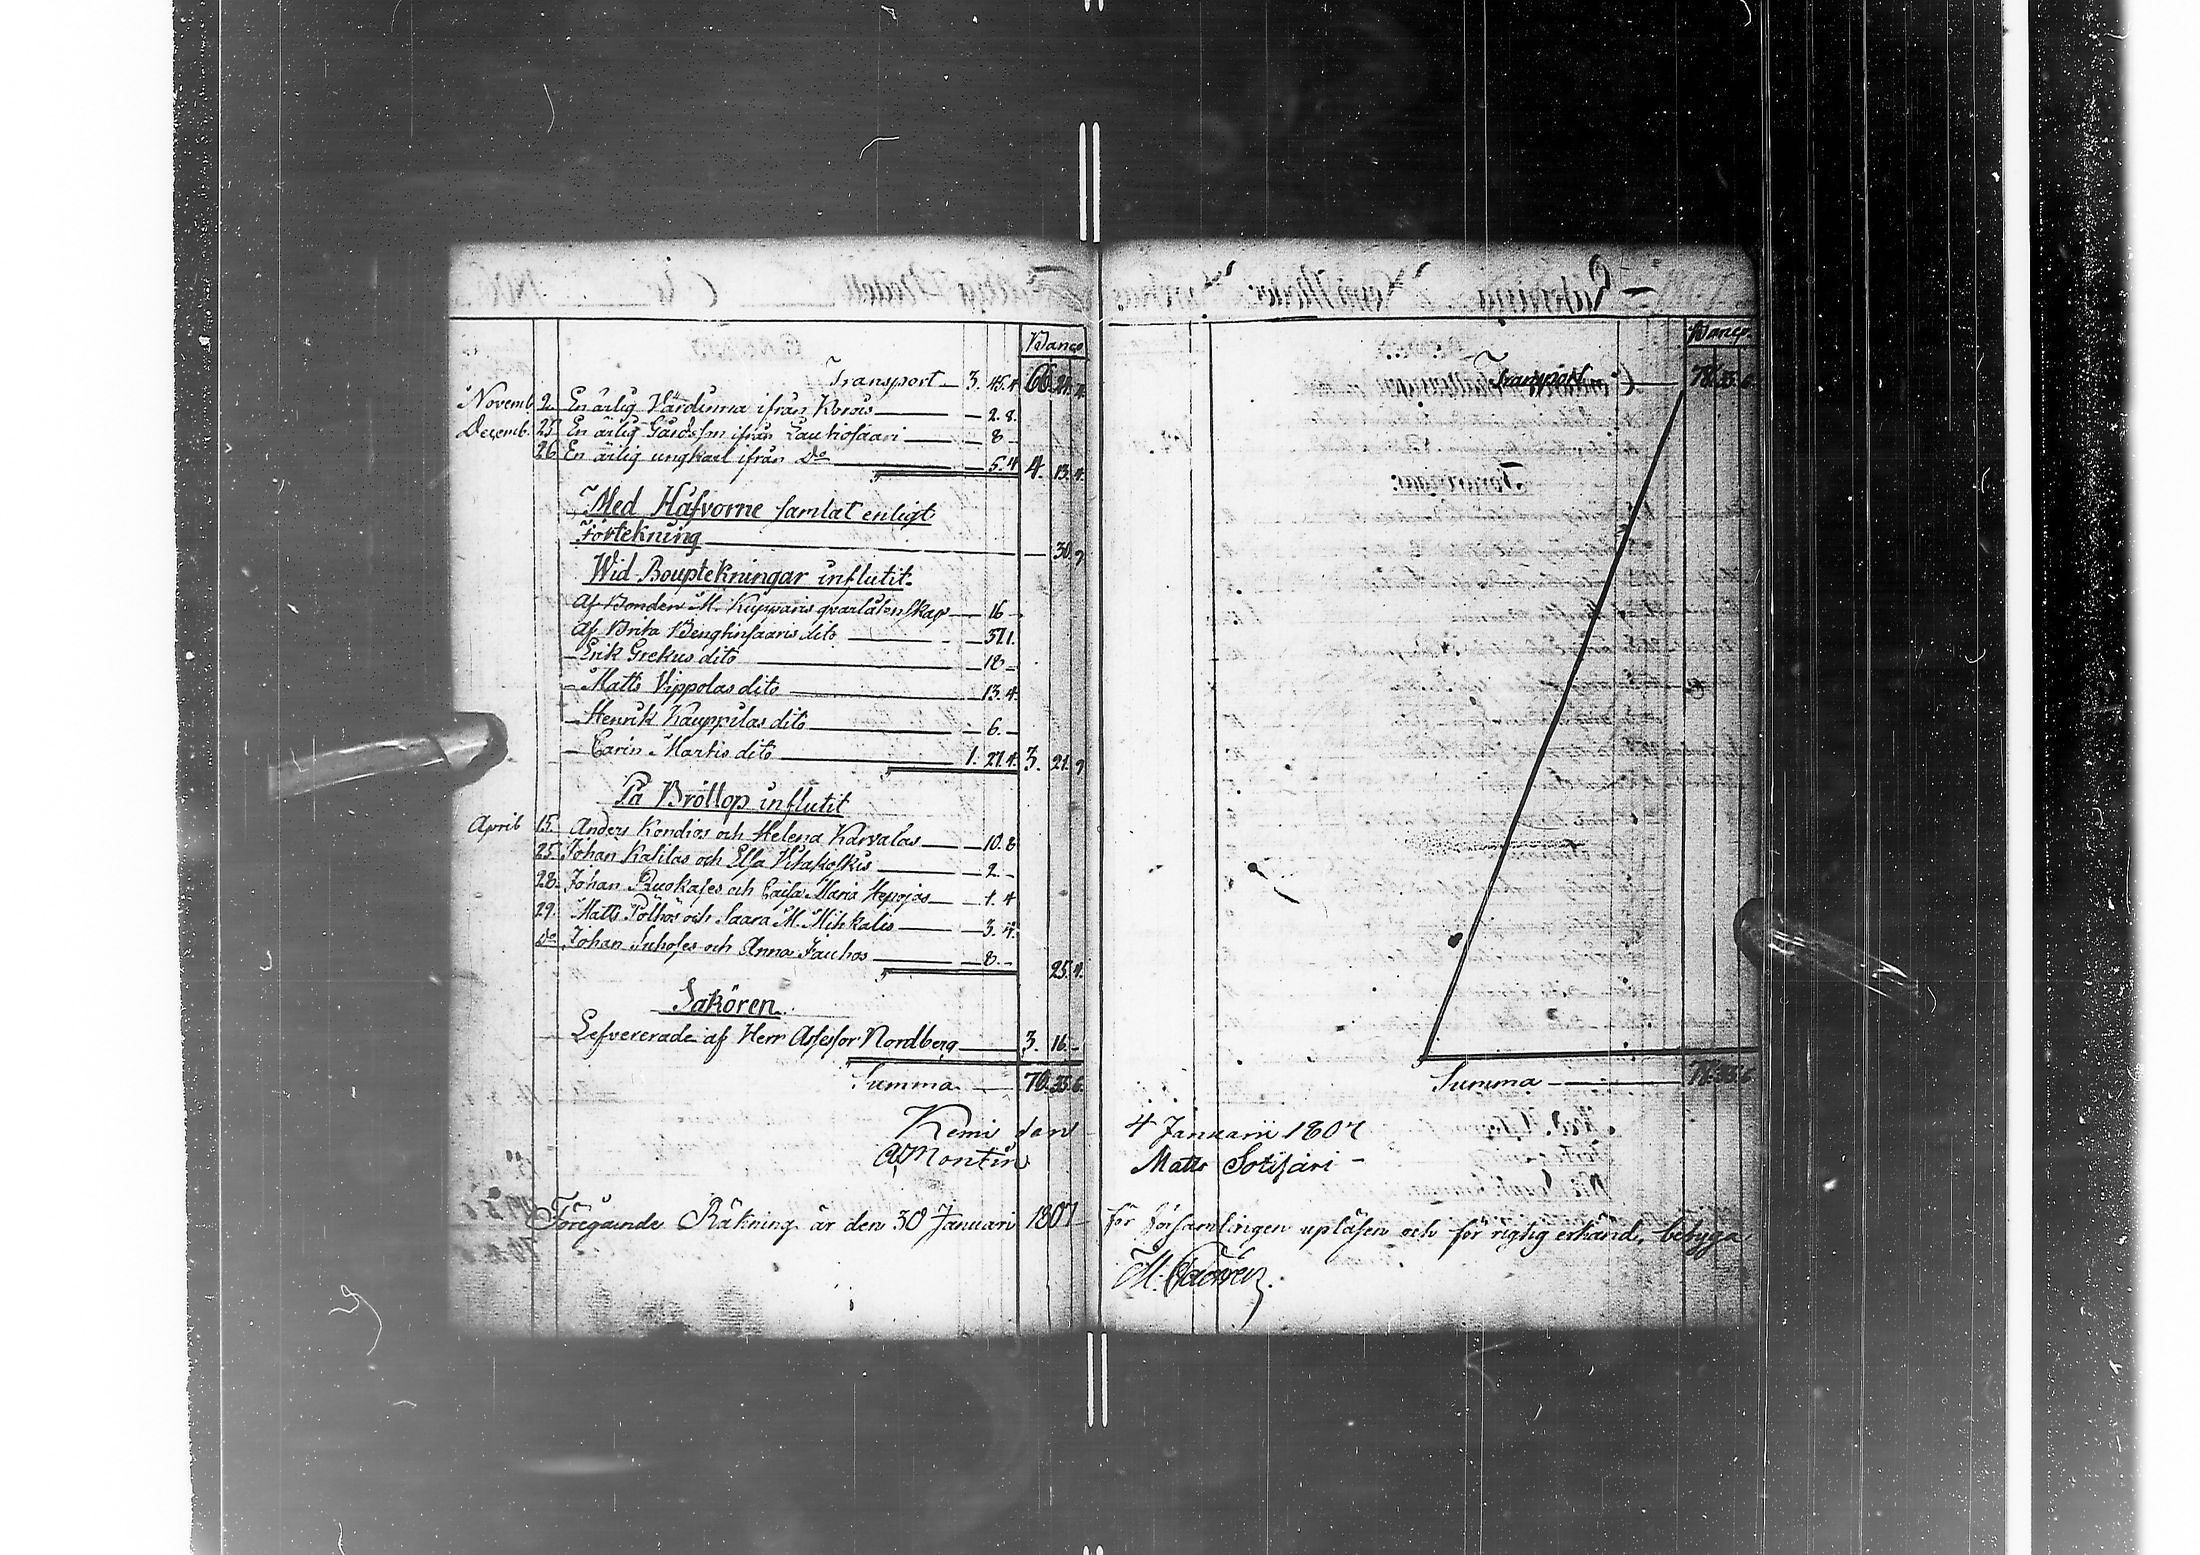 Banco
Transport 3. 45.4 66.21.4.
Novemb. 2. En ärlig Värdinna ifrån Korois 2.8.
Desemb. 25. En ärlig Gårdsson ifrån Lautiosaari 8 -
26 En ärlig ungkarl ifrån Do 5.4 4. 13.4.
Med Håfvorne samlat enligt
Förtekning 30.9
Wid Bouptekningar influtit.
Af Bonden M. Kupparis qvarlåtenskap 16 -
Af Brita Benghinsaaris dito 37.1.
- Erik Grekus dito 18 -
- Matts Vippolas dito 13.4.
- Henrik Kauppilas dito 6. -
- Carin Martis dito 1. 27.4. 3. 21.9
På Bröllop influtit
April 15. Anders Kondios och Helena Karvalas 10.8
25. Johan Kalilas och Elsa Kitakoskis 2. -
28. Johan Ruokases och Caisa Maria Hepojas 1.4
29. Matts Pölhös och Saara M. Mihkalis 3.4.
Do Johan Suhoses och Anna Jauhos 8. - 25.4.
Sakören
Lefvererade af Herr Assessor Nordberg 3. 16. -
Summa 78.35.6.
Kemi den
A. Montin
Föregående Räkning är den 30 Januari 1807
Banco.
Transport 78.35.6
Summa 78.35.6
4 Januarii 1807
Matts Sotisari
för Församlingen upläsen och för rigtig erkänd, betyga
M.